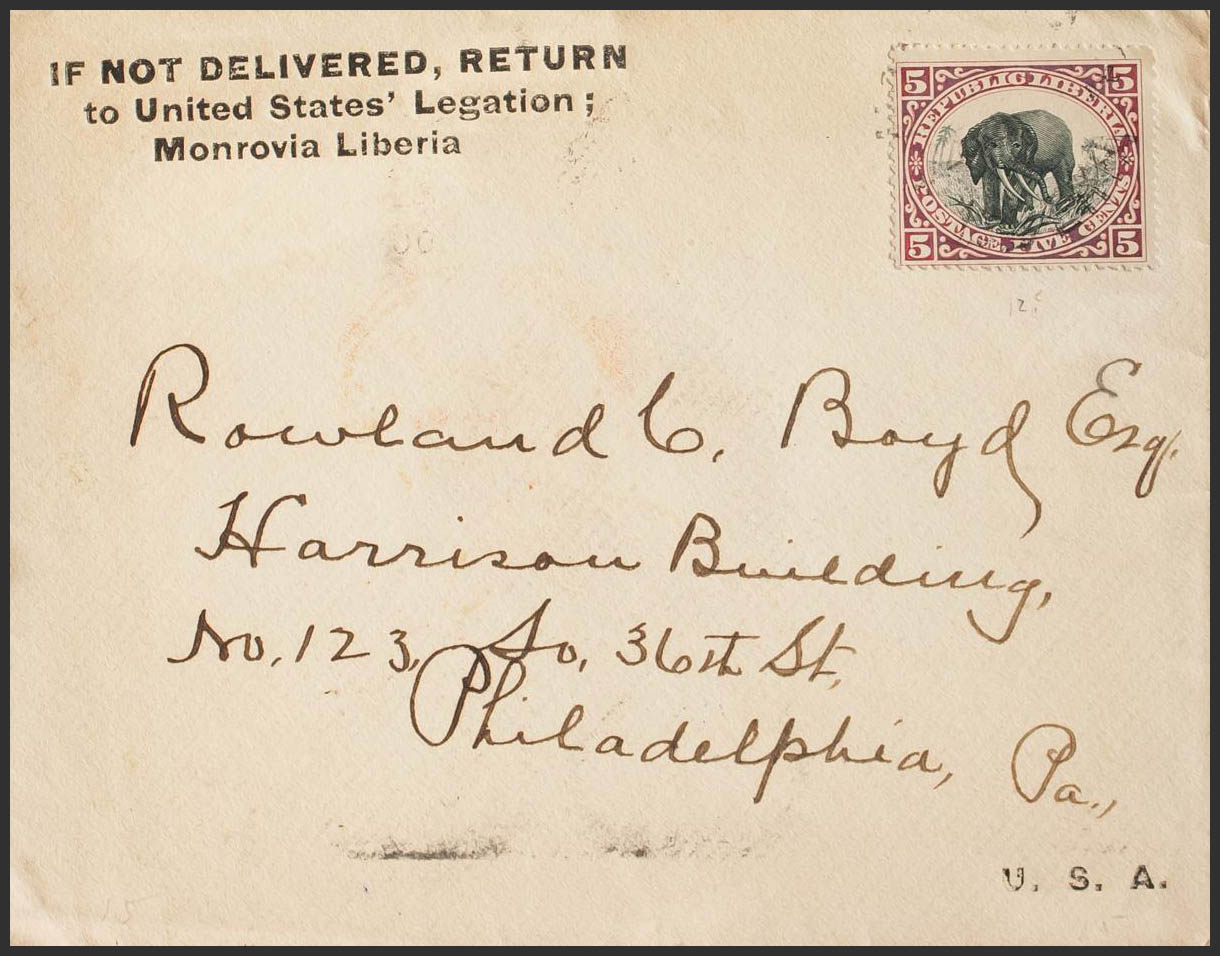 IF NOT DELIVERED, RETURN
to United States' Legation;
Monrovia Liberia
5 5
REPUBLIC LIBERIA
POSTAGE, FIVE CENTS
5 5
Rowland C. Boyd Esq.
Harrison Building,
No. 123, So. 36th St.
Philadelphia, Pa.,
U. S. A.